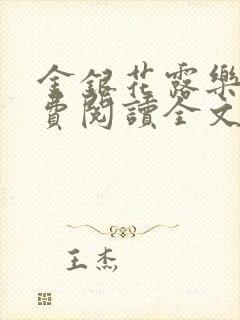 金銀花露樂
費閱讀全文
王杰